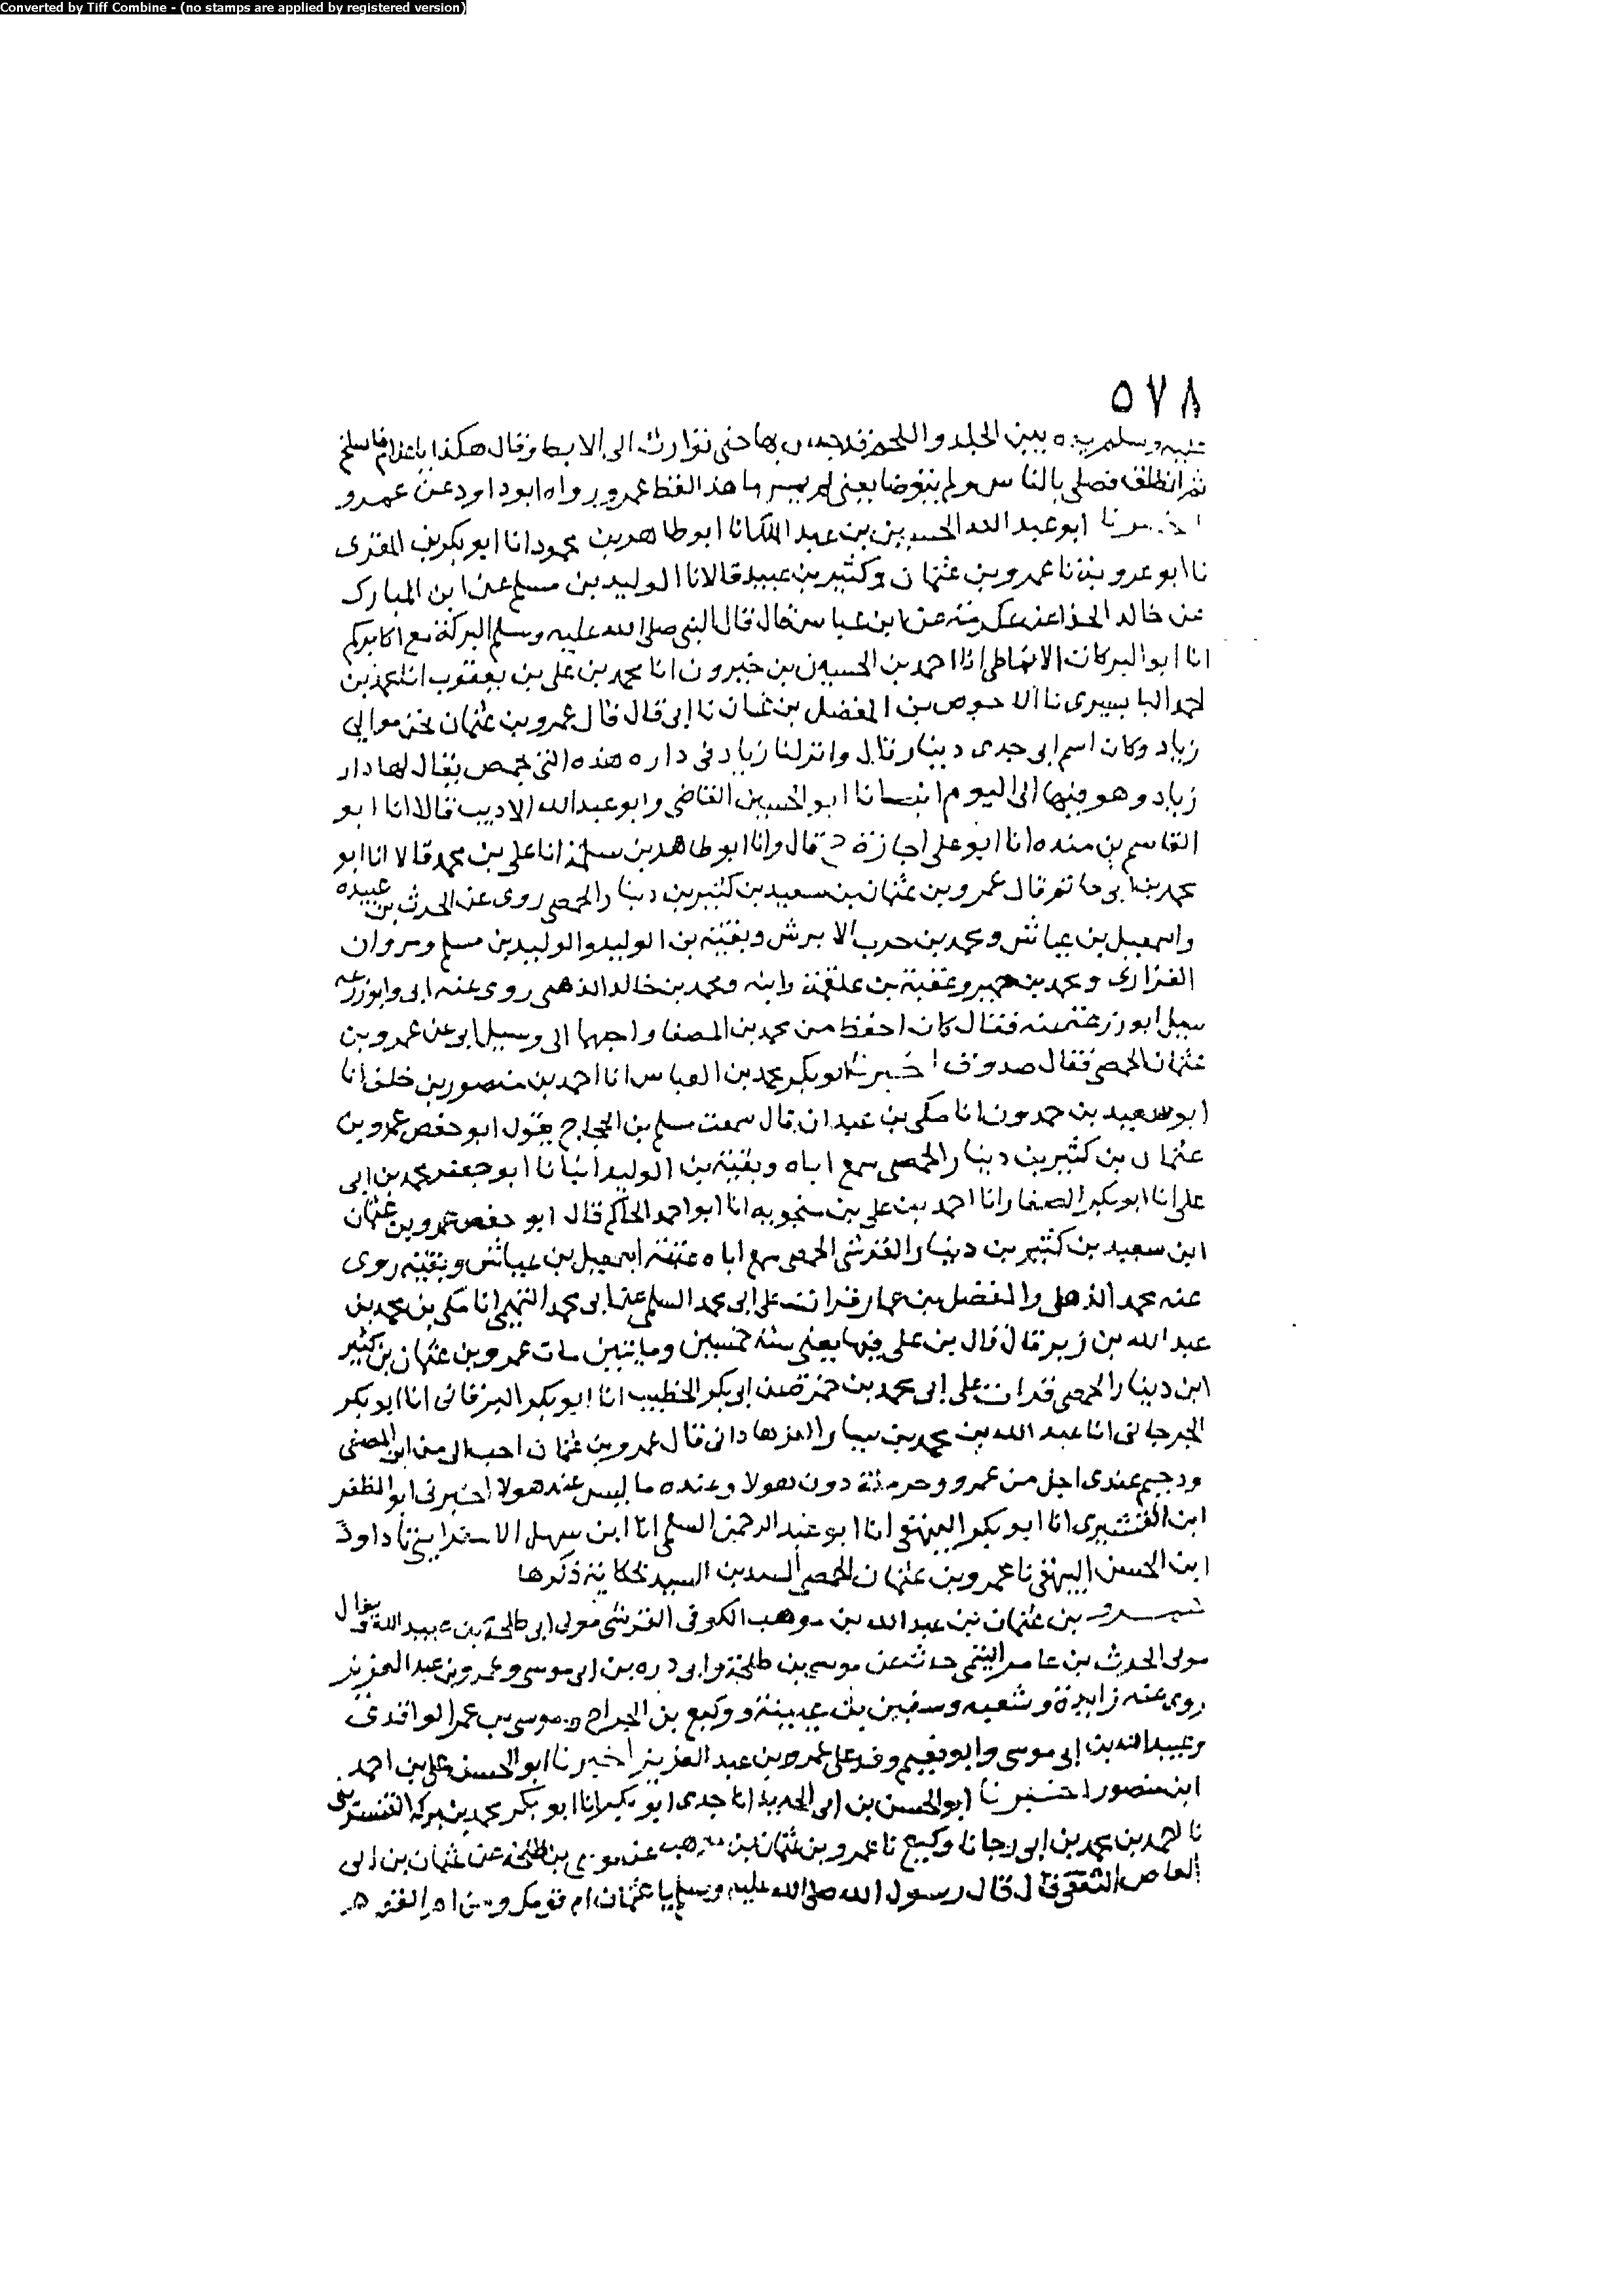 Converted by Tiff Combine - (no stamps are applied by registered version)
٥٧٨
عليه وسلم يده بين الجلد واللحم فدحس بها حتى توارت الى الابط وقال هكذا يا غلام فاسلخ
ثم انطلق فصلى بالناس ولم يتوضا يعني لم يمس ما هذا لفظ عمرو رواه ابو داود عن عمرو
اخبرنا ابو عبد الله الحسين بن عبد الملك انا ابو طاهر بن محمود انا ابو بكر بن المقرى
نا ابو عروبة نا عمرو بن عثمان وكثير بن عبيد قالا نا الوليد بن مسلم عن ابن المبارك
عن خالد الحذا عن عكرمة عن ابن عباس قال قال النبي صلى الله عليه وسلم البركة مع اكابركم
انا ابو البركات الانماطي انا احمد بن الحسين بن خيرون انا محمد بن علي بن يعقوب انا محمد بن
احمد البابسيرى نا الاحوص بن المفضل بن غسان نا ابى قال قال عمرو بن عثمان نحن موالي
زياد وكان اسم ابى جدى دينار وقال وانزلنا زياد في داره هذه التي بحمص يقال لها دار
زياد وهو فيها الى اليوم انبانا ابو الحسين القاضي وابو عبد الله الاديب قالا انا ابو
القاسم بن منده انا ابو على اجازة ح قال وانا ابو طاهر بن سلمة انا على بن محمد قالا انا ابو
محمد بن ابي حاتم قال عمرو بن عثمان بن سعيد بن كثير بن دينار الحمصى روى عن الحرث بن عبيده
واسمعيل بن عياش ومحمد بن حرب الابرش وبقية بن الوليد والوليد بن مسلم ومروان
الفزارى ومحمد بن حمير وعقبة بن علقمة وابيه ومحمد بن خالد الذهبى روى عنه ابى وابو زرعه
سيل ابو زرعة عنه فقال كان احفظ من محمد بن المصفا واحبهما الى وسيل ابى عن عمرو بن
عثمان الحمصى فقال صدوق اخبرنا ابو بكر محمد بن العباس انا احمد بن منصور بن خلف انا
ابو سعيد بن حمدون انا مكى بن عبدان قال سمعت مسلم بن الحجاج يقول ابو حفص عمرو بن
عثمان بن كثير بن دينار الحمصى سمع اباه وبقية بن الوليد انبانا ابو جعفر محمد بن ابى
على انا ابو بكر الصفار انا احمد بن على بن منجويه انا ابو احمد الحاكم قال ابو حفص عمرو بن عثمان
ابن سعيد بن كثير بن دينار القرشى الحمصى سمع اباه عتبة اسمعيل بن عياش وبقية روى
عنه محمد الذهلى والمفضل بن عمار قرات على ابى محمد السلمى عن ابى محمد التميمى انا مكى بن محمد بن
عبد الله بن زبر قال قال بن على فيها يعنى سنة خمسين ومايتين مات عمرو بن عثمان بن كثير
ابن دينار الحمصى قرات على ابى محمد بن حمزة عن ابى بكر الخطيب انا ابو بكر البرقانى انا ابو بكر
الجرجانى انا عبد الله بن محمد بن سيار الفرهادانى قال عمرو بن عثمان احب الى من ابن المصفى
ودحيم عندى اجل من عمرو وحرملة دون هولا وعنده ما ليس عند هولا اخبرنى ابو المظفر
ابن القشيرى انا ابو بكر البيهقى انا ابو عبد الرحمن السلمى انا ابن سهل الاسفراينى نا داود
ابن الحسن البيهقى نا عمرو بن عثمان الحمصى السيد بن السيد بحكاية ذكرها
عمرو بن عثمان بن عبد الله بن موهب الكوفى القرشى مولى ابى طلحة بن عبيد الله ويقال
مولى الحرث بن عامر التيمى حدث عن موسى بن طلحة وابى بردة بن ابى موسى وعمرو بن عبد العزيز
روى عنه زايدة وشعبه وسفين بن عيينة ووكيع بن الجراح وموسى بن عمر الواقدى
وعبيد الله بن ابى موسى وابو نعيم وفد على عمرو بن عبد العزيز اخبرنا ابو الحسن على بن احمد
ابن منصور اخبرنا ابو الحسن بن ابى الحديد انا جدى ابو بكر انا ابو بكر محمد بن بركة القنسرينى
نا احمد بن محمد بن ابى رجا نا وكيع نا عمرو بن عثمان بن موهب عن موسى بن طلحة عن عثمان بن ابى
العاص الثقفى قال قال رسول الله صلى الله عليه وسلم يا عثمان ام قومك ومن ام القوم